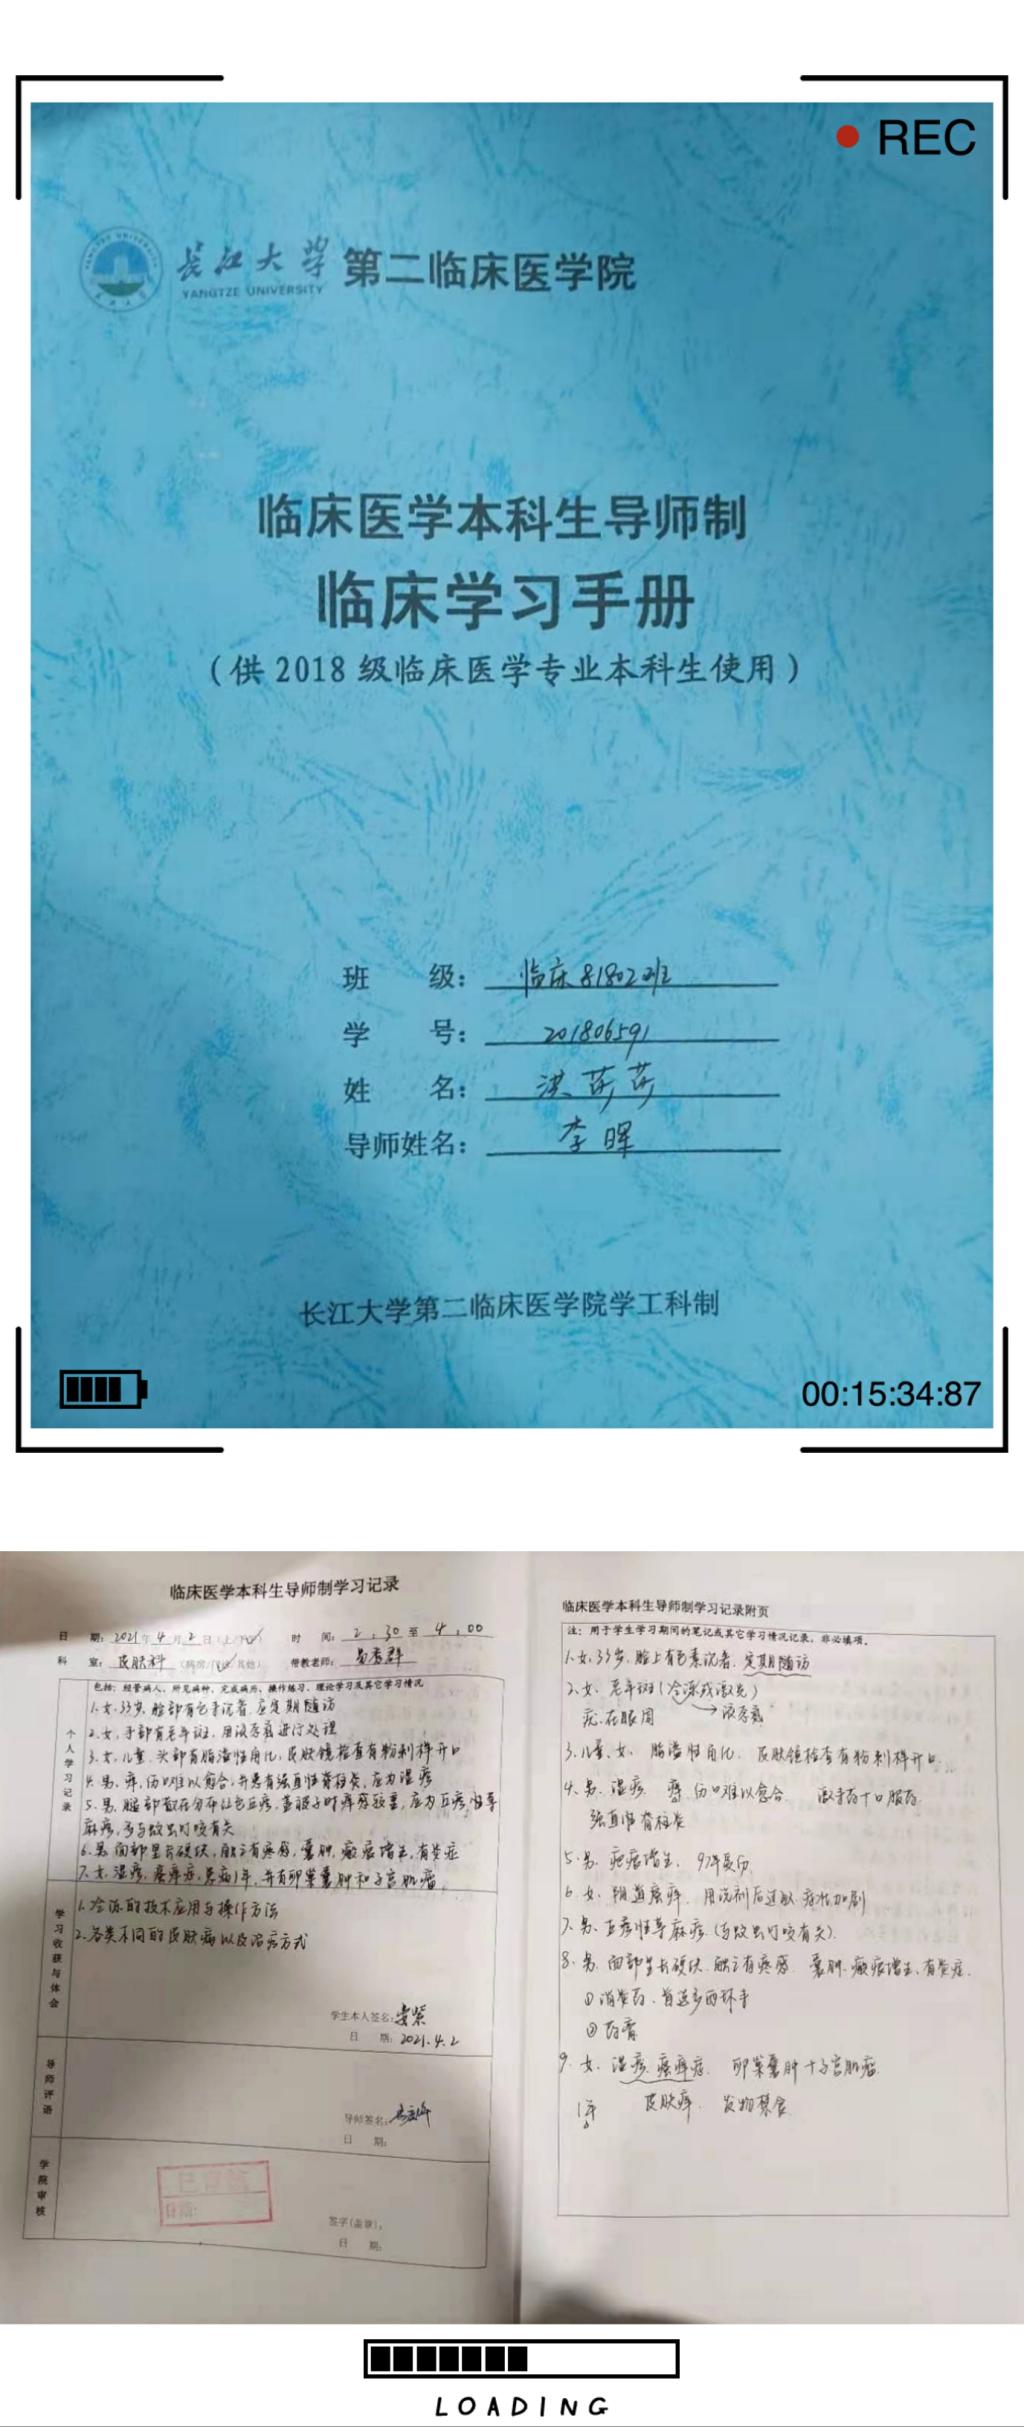 REC
长江大学 第二临床医学院
YANGTZE UNIVERSITY
临床医学本科生导师制
临床学习手册
（供 2018 级临床医学专业本科生使用）
班 级： 临床81802班
学 号： 201806591
姓 名： 洪莎莎
导师姓名： 李晖
长江大学第二临床医学院学工科制
00:15:34:87
临床医学本科生导师制学习记录
日 期：2021年4月2日（上/下午） 时 间：2:30至4:00
科 室：皮肤科（病房/门诊/其他） 带教老师：
包括：经管病人、所见病种、完成病历、操作练习、理论学习及其它学习情况
个人学习记录
1.女，33岁，脸部有色素沉着，应定期随访
2.女，手部有老年斑，用液态氮进行处理
3.女，儿童，头部有脂溢性角化，皮肤镜检查有粉刺样开口
4.男，痒，伤口难以愈合，并患有强直性脊柱炎，应为湿疹
5.男，腿部散在分布红色丘疹，盖被子时痒感较重，应为丘疹性荨
麻疹，多与蚊虫叮咬有关
6.男，面部呈片硬块，触之有疼感，囊肿，瘢痕增生，有炎症
7.女，湿疹，瘙痒症，患病1年，并有卵巢囊肿和子宫肌瘤。
学习收获与体会
1.冷冻的技术应用与操作方法
2.各类不同的皮肤病以及治疗方式
学生本人签名：
日 期：2021.4.2
导师评语
导师签名：
日 期：
学院审核
已审核
日期：
签字(盖章)：
日 期：
临床医学本科生导师制学习记录附页
注：用于学生学习期间的笔记或其它学习情况记录，非必填项。
1.女，33岁，脸上有色素沉着，定期随访
2.女，老年斑（冷冻或激光）
疣，在眼周 →液态氮
3.儿童，女，脂溢性角化，皮肤镜检查有粉刺样开口
4.男，湿疹，痒，伤口难以愈合 激素药＋口服药
强直性脊柱炎
5.男，疤痕增生，
6.女，阴道瘙痒，用洗剂后过敏，症状加剧
7.男，丘疹性荨麻疹（与蚊虫叮咬有关）
8.男，面部呈片硬块，触之有疼感，囊肿，瘢痕增生，有炎症
①消炎药，首选多西环素
②药膏
9.女，湿疹，瘙痒症，卵巢囊肿＋子宫肌瘤
1年 皮肤痒，发物禁食
LOADING